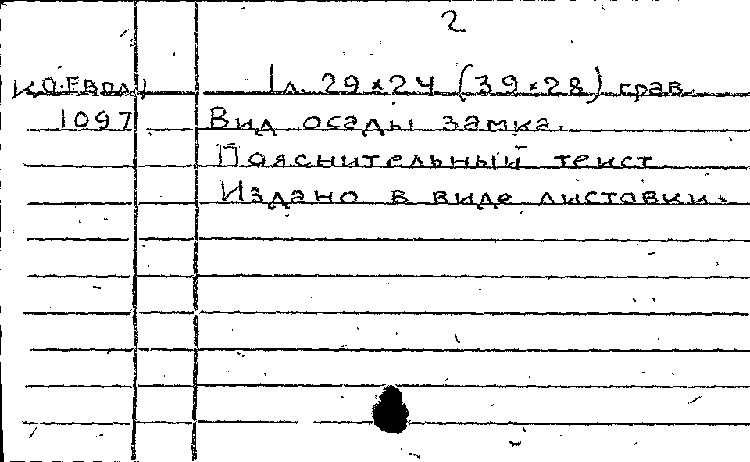 2
К.О.Евол.
1 л. 29×24 (39×28) грав.
1097
Вид осады замка.
Пояснительный текст
Издано в виде листовки.